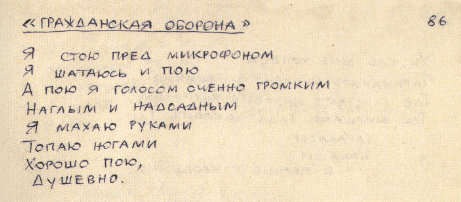 «ГРАЖДАНСКАЯ ОБОРОНА» 86
Я СТОЮ ПРЕД МИКРОФОНОМ
Я ШАТАЮСЬ И ПОЮ
А ПОЮ Я ГОЛОСОМ ОЧЕННО ГРОМКИМ
НАГЛЫМ И НАДСАДНЫМ
Я МАХАЮ РУКАМИ
ТОПАЮ НОГАМИ
ХОРОШО ПОЮ,
ДУШЕВНО.